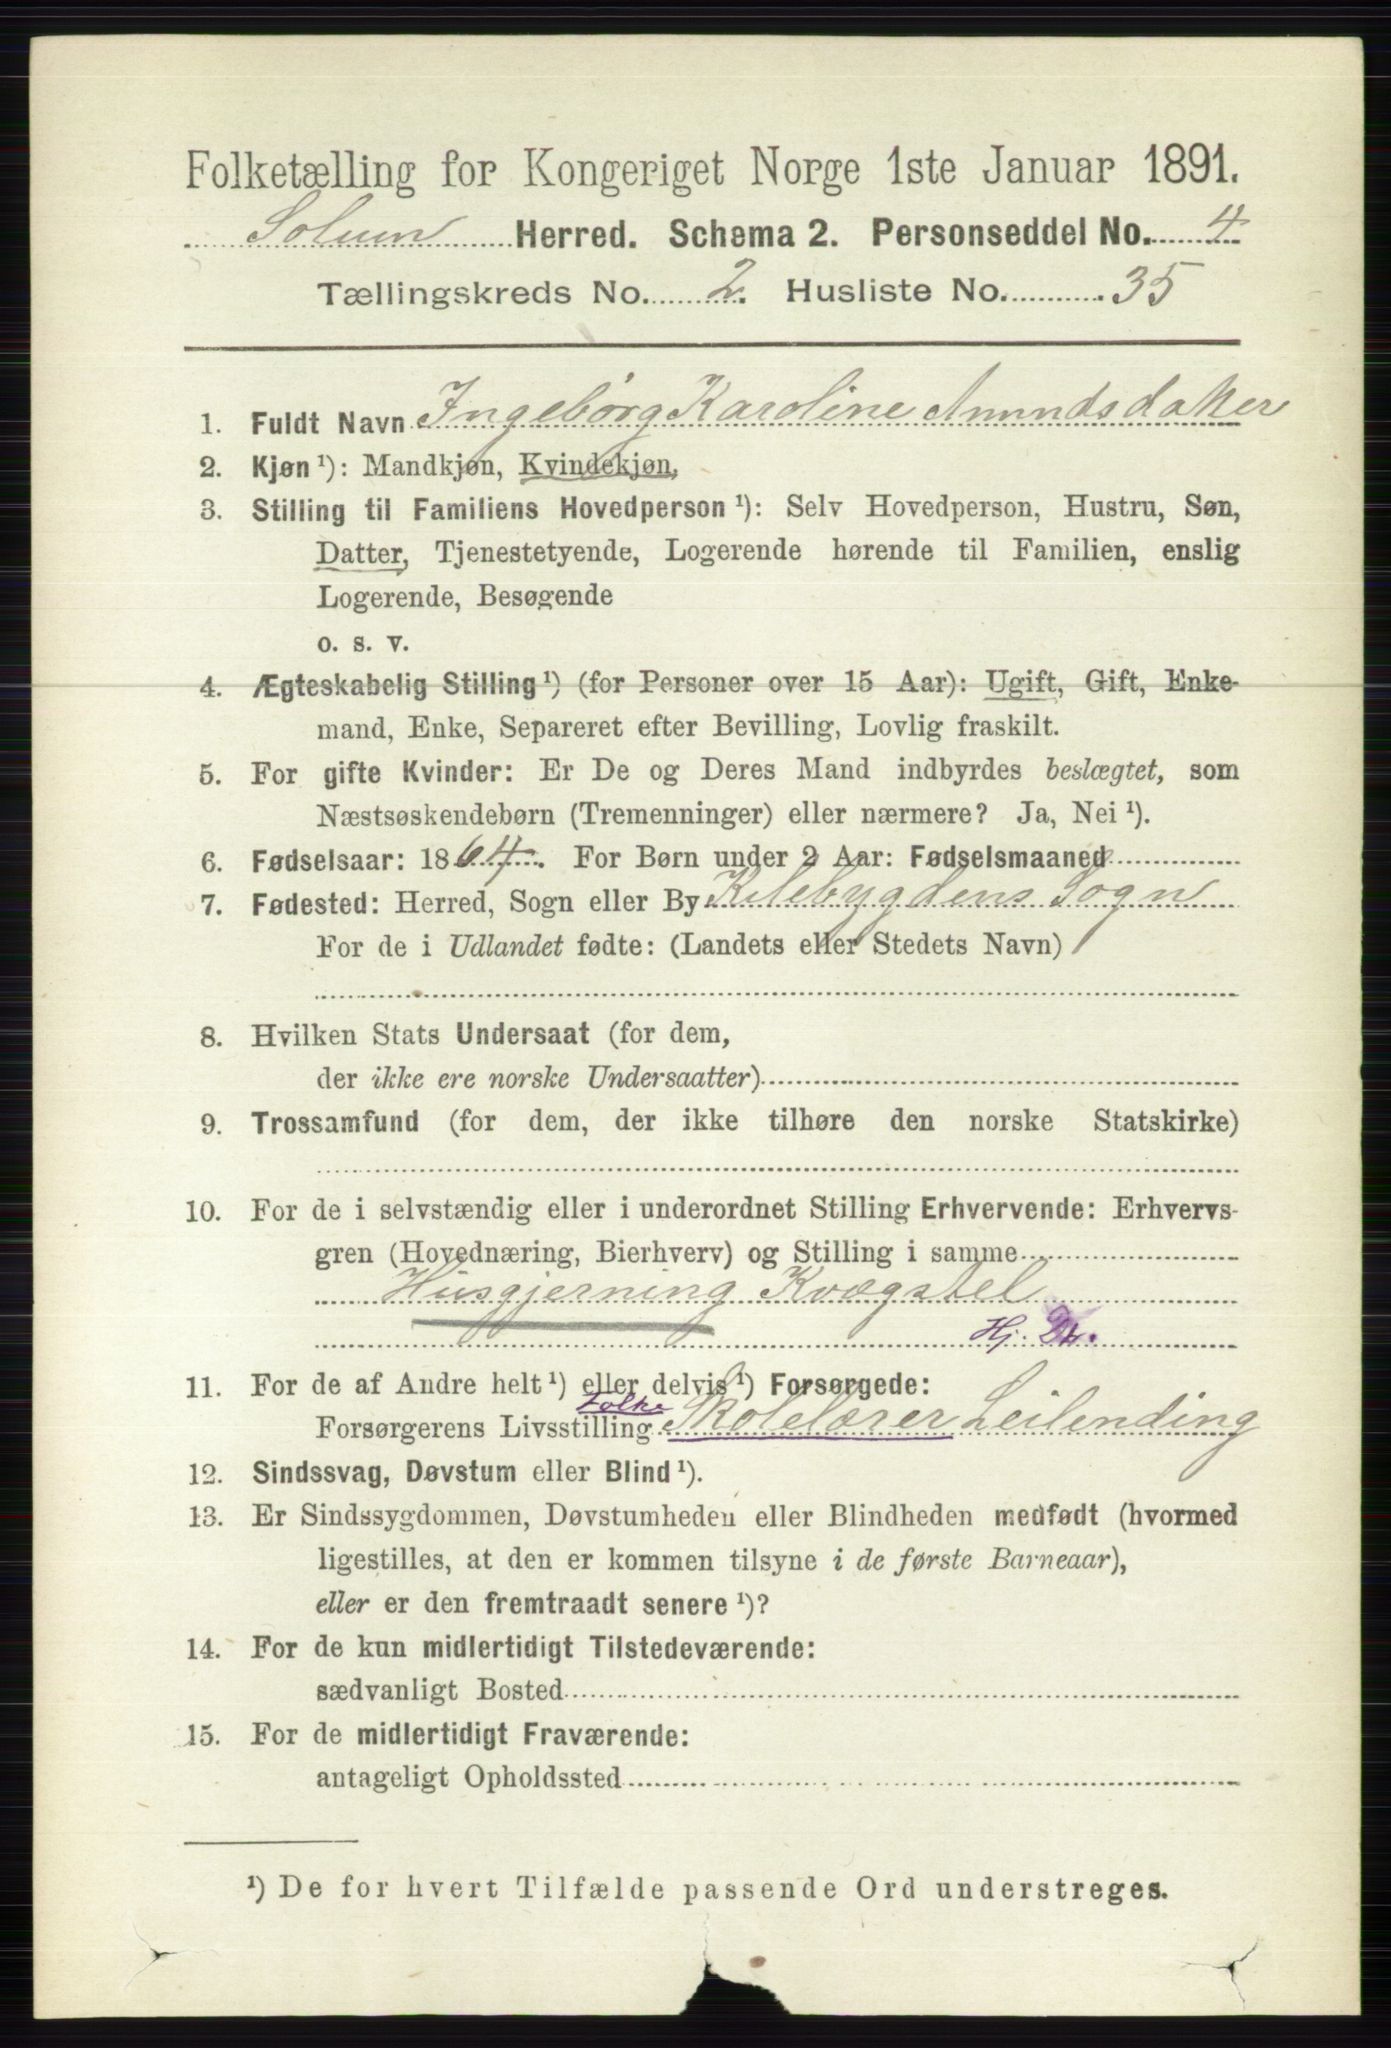 Folketælling for Kongeriget Norge 1ste Januar 1891.
Solum Herred. Schema 2. Personseddel No. 4
Tællingskreds No. 2. Husliste No. 35
1. Fuldt Navn Ingebørg Karoline Amundsdatter
2. Kjøn ¹): Mandkjøn, Kvindekjøn,
3. Stilling til Familiens Hovedperson ¹): Selv Hovedperson, Hustru, Søn,
Datter, Tjenestetyende, Logerende hørende til Familien, enslig
Logerende, Besøgende
o. s. v.
4. Ægteskabelig Stilling ¹) (for Personer over 15 Aar): Ugift, Gift, Enke-
mand, Enke, Separeret efter Bevilling, Lovlig fraskilt.
5. For gifte Kvinder: Er De og Deres Mand indbyrdes beslægtet, som
Næstsøskendebørn (Tremenninger) eller nærmere? Ja, Nei ¹).
6. Fødselsaar: 1864. For Børn under 2 Aar: Fødselsmaaned
7. Fødested: Herred, Sogn eller By Kilebygdens Sogn
For de i Udlandet fødte: (Landets eller Stedets Navn)
8. Hvilken Stats Undersaat (for dem,
der ikke ere norske Undersaatter)
9. Trossamfund (for dem, der ikke tilhøre den norske Statskirke)
10. For de i selvstændig eller i underordnet Stilling Erhvervende: Erhvervs-
gren (Hovednæring, Bierhverv) og Stilling i samme
Husgjerning Kvægstel
Hj. Dt.
11. For de af Andre helt ¹) eller delvis ¹) Forsørgede:
Folke
Forsørgerens Livsstilling Skolelærer Leilending
12. Sindssvag, Døvstum eller Blind ¹).
13. Er Sindssygdommen, Døvstumheden eller Blindheden medfødt (hvormed
ligestilles, at den er kommen tilsyne i de første Barneaar),
eller er den fremtraadt senere ¹)?
14. For de kun midlertidigt Tilstedeværende:
sædvanligt Bosted
15. For de midlertidigt Fraværende:
antageligt Opholdssted
¹) De for hvert Tilfælde passende Ord understreges.